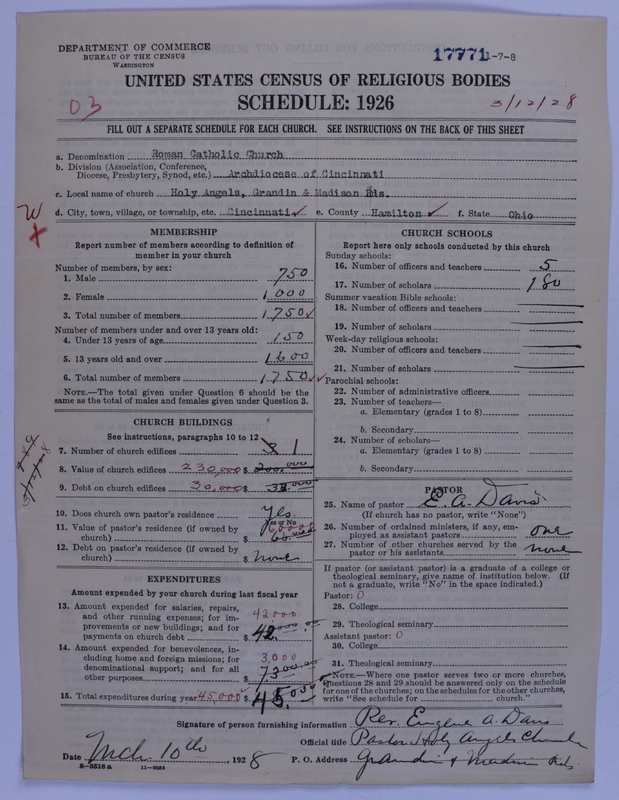 DEPARTMENT OF COMMERCE
BUREAU OF THE CENSUS
WASHINGTON
17771 1-7-8
UNITED STATES CENSUS OF RELIGIOUS BODIES
SCHEDULE: 1926
03
3/12/28
FILL OUT A SEPARATE SCHEDULE FOR EACH CHURCH. SEE INSTRUCTIONS ON THE BACK OF THIS SHEET
a. Denomination Roman Catholic Church
b. Division (Association, Conference, Diocese, Presbytery, Synod, etc.) Archdiocese of Cincinnati
c. Local name of church Holy Angels, Grandin & Madison Rds.
d. City, town, village, or township, etc. Cincinnati e. County Hamilton f. State Ohio
MEMBERSHIP
Report number of members according to definition of
member in your church
Number of members, by sex:
1. Male 750
2. Female 1000
3. Total number of members 1750
Number of members under and over 13 years old:
4. Under 13 years of age 150
5. 13 years old and over 1600
6. Total number of members 1750
NOTE.—The total given under Question 6 should be
same as the total of males and females given under Question 3.
CHURCH BUILDINGS
See instructions, paragraphs 10 to 12
7. Number of church edifices 1
8. Value of church edifices 230,000 $ 200,000
9. Debt on church edifices 30,000 $
10. Does church own pastor's residence? Yes.
Yes or No
11. Value of pastor's residence (if owned by
church) $ 60000
12. Debt on pastor's residence (if owned by
church) $ None
EXPENDITURES
Amount expended by your church during last fiscal year
13. Amount expended for salaries, repairs,
and other running expenses; for im-
provements or new buildings; and for
payments on church debt 42000 $ 42,000
14. Amount expended for benevolences, in-
cluding home and foreign missions; for
denominational support; and for all
other purposes 3,000 $ 3000
15. Total expenditures during year 45000 $ 45,000
CHURCH SCHOOLS
Report here only schools conducted by this church
Sunday schools:
16. Number of officers and teachers 5
17. Number of scholars 180
Summer vacation Bible schools:
18. Number of officers and teachers
19. Number of scholars
Week-day religious schools:
20. Number of officers and teachers
21. Number of scholars
Parochial schools:
22. Number of administrative officers
23. Number of teachers—
a. Elementary (grades 1 to 8)
b. Secondary
24. Number of scholars—
a. Elementary (grades 1 to 8)
b. Secondary
PASTOR
25. Name of pastor E. A. Davis
(If church has no pastor, write "None")
26. Number of ordained ministers, if any, em-
ployed as assistant pastors one
27. Number of other churches served by the
pastor or his assistants none
If pastor (or assistant pastor) is a graduate of a college or
theological seminary, give name of institution below. (If
not a graduate, write "No" in the space indicated.)
Pastor: 0
28. College
29. Theological seminary
Assistant pastor: 0
30. College
31. Theological seminary
NOTE.—Where one pastor serves two or more churches,
Questions 28 and 29 should be answered only on the schedule
for one of the churches; on the schedules for the other churches,
write "See schedule for church."
Signature of person furnishing information Rev. Eugene A. Davis
Official title Pastor Holy Angels Church
Date Mch. 10th, 1928 P. O. Address Grandin & Madison Rds.
8-5518a 11-9084